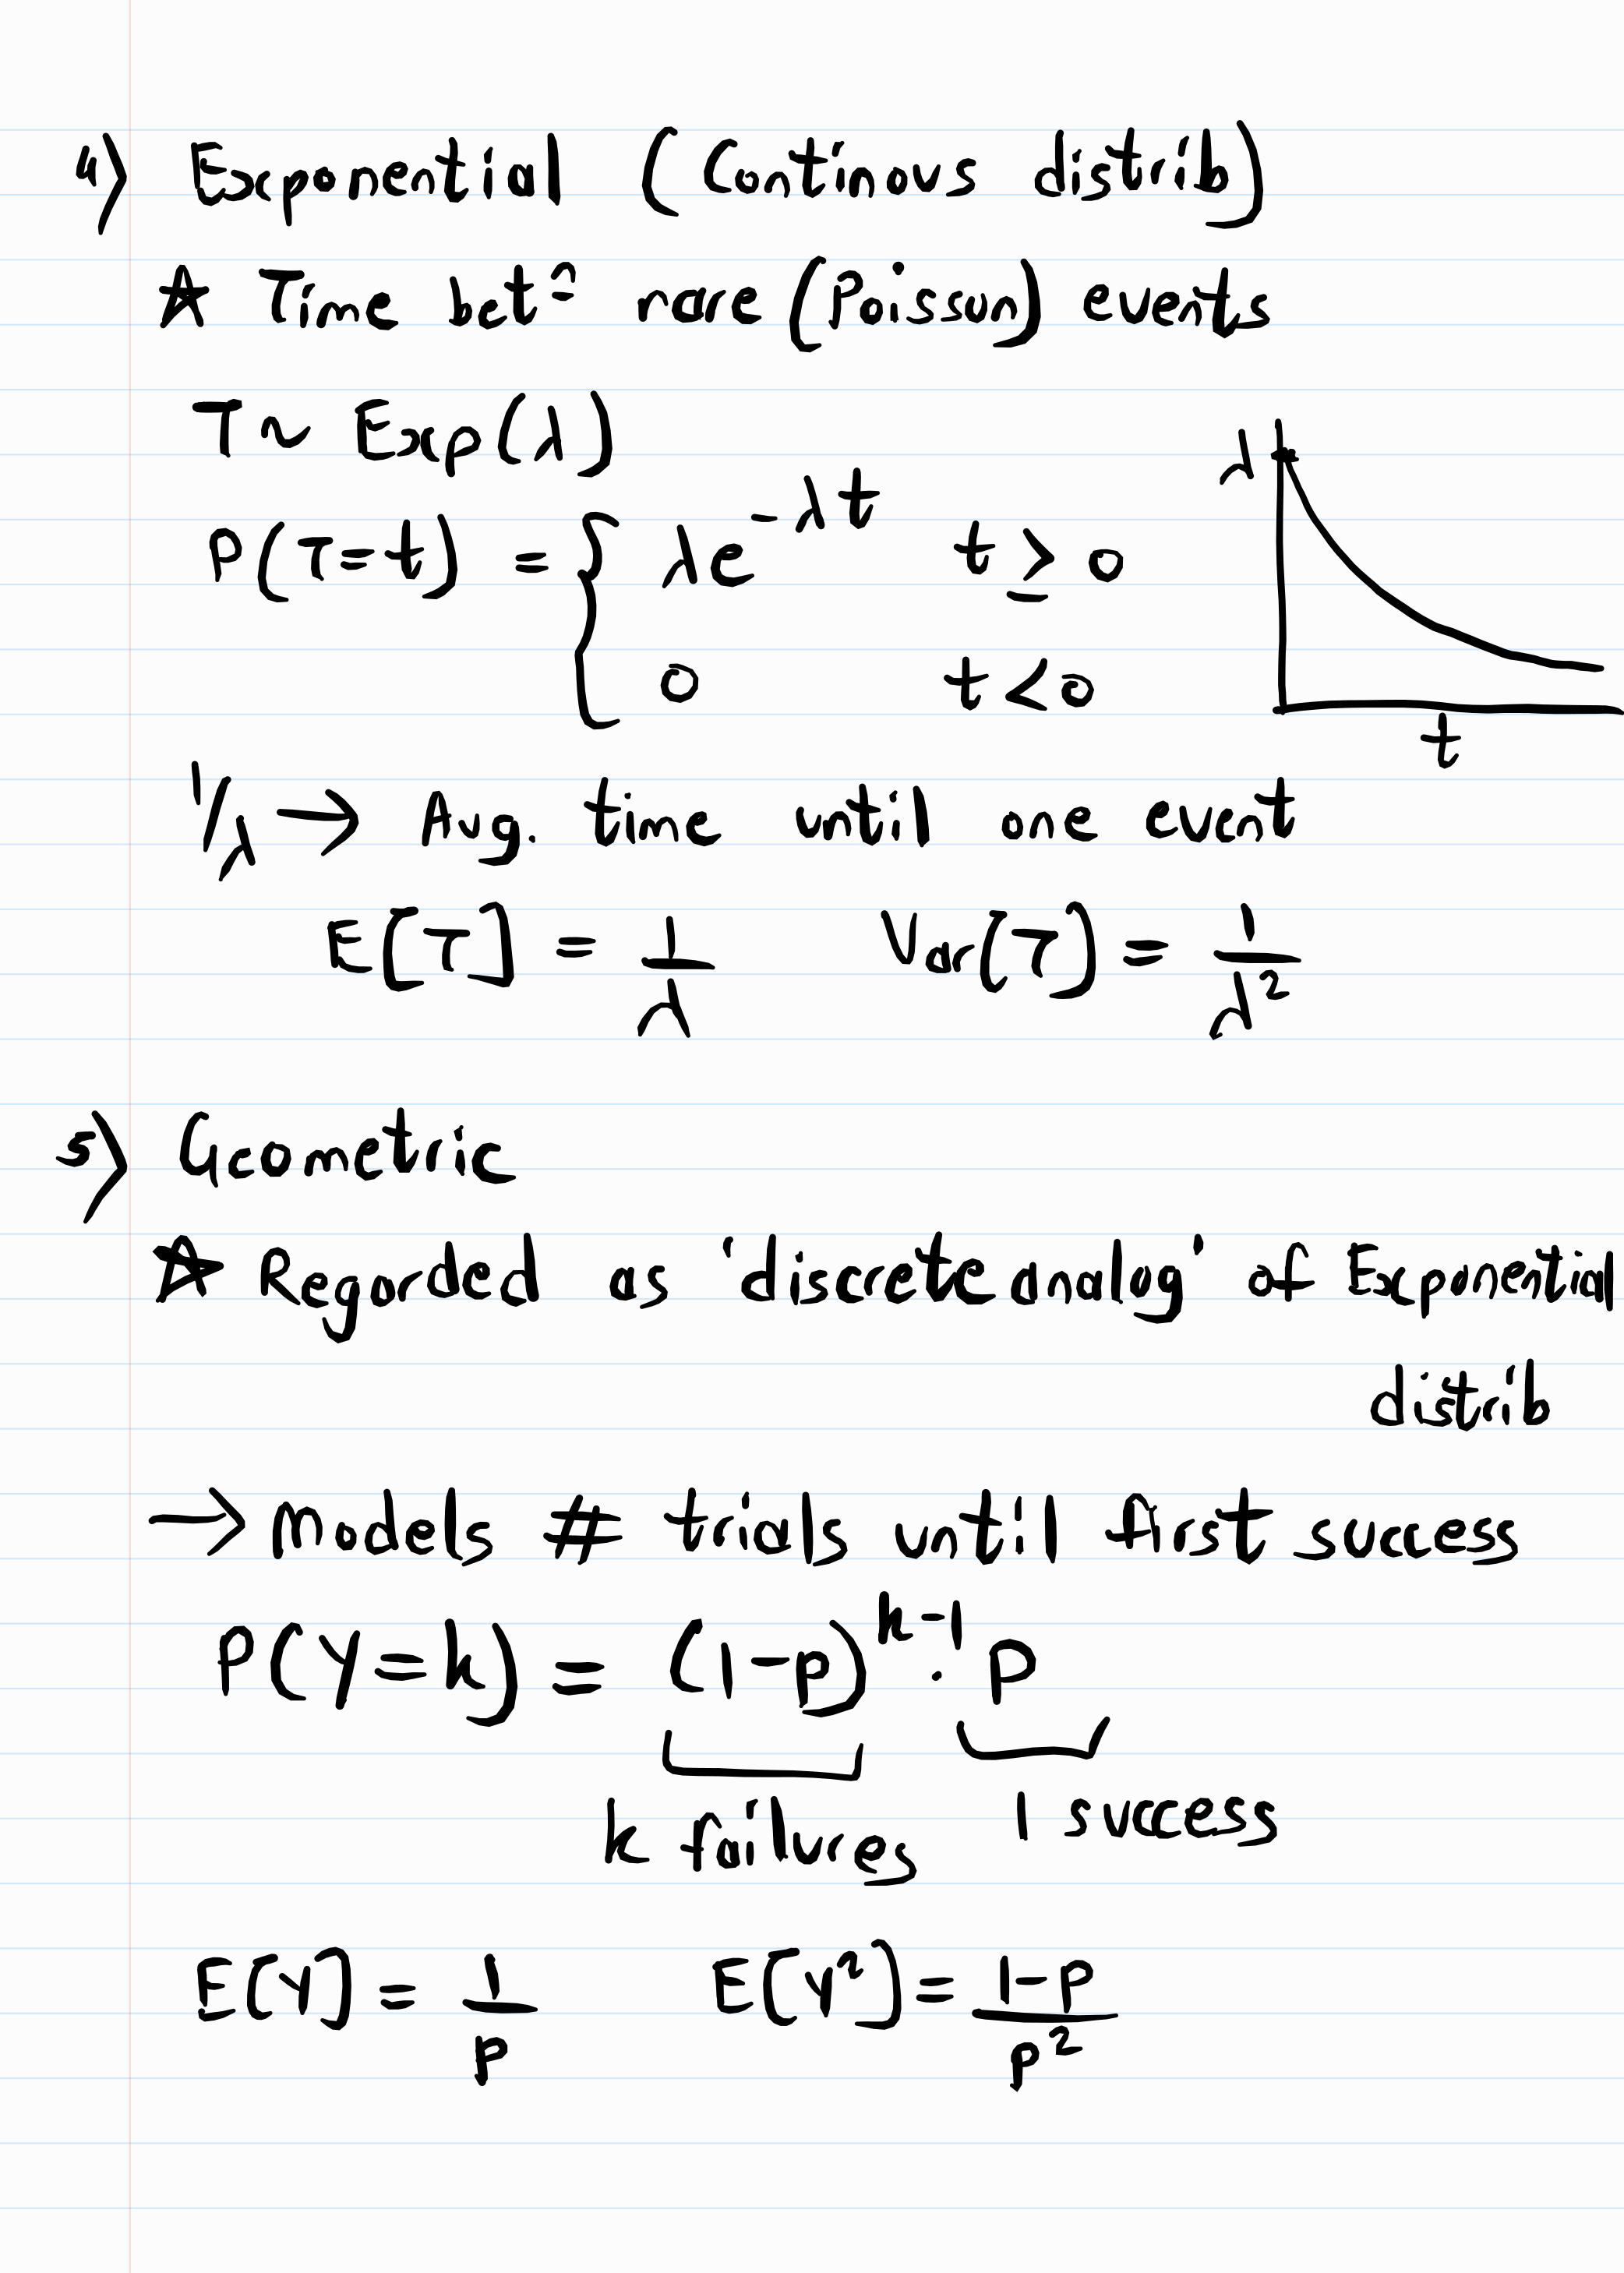 4) Exponential (Continous distrib)
★ Time betⁿ rare (Poisson) events
T ~ Exp(λ)
P(T=t) = { λe^{-λt} t ≥ 0
0 t < 0
λ
t
1/λ → Avg. time until one event
E[T] = 1/λ Var[T] = 1/λ²
5) Geometric
★ Regarded as 'discrete analog' of Exponential
distrib
→ Models # trials until first success
P(Y=k) = (1-p)^{k-1} · p
k failures 1 success
E[Y] = 1/p E[Y²] = (1-p)/p²